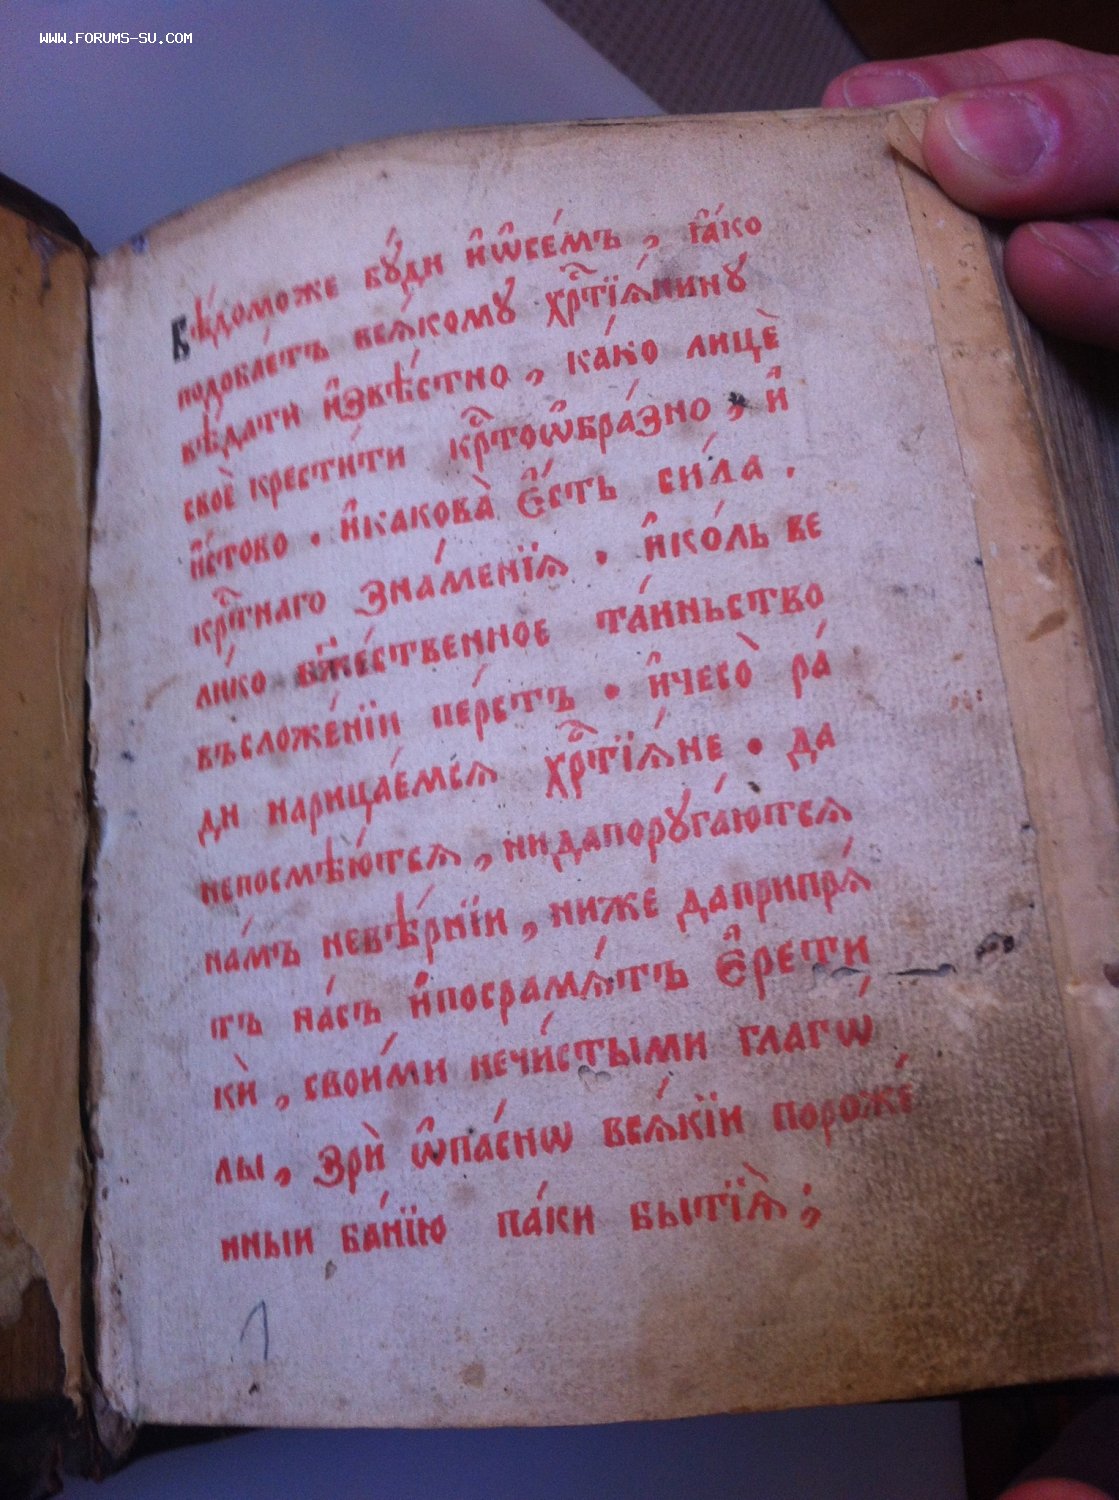 WWW.FORUMS-SU.COM
Вѣ́доможе бꙋ́ди и҆ѡ҆се́мъ , ꙗ҆́ко
подоба́етъ вся́комꙋ хрⷭ҇тїѧ́нинꙋ
вѣ́дати и҆звѣ́стно , ка́ко лицѐ
своѐ крести́ти крⷭ҇тоѡ҆бра́зно , и҆
и҆́стово . и҆какова̀ є҆́сть си́ла .
крⷭ҇тнаго зна́менїѧ . и҆ко́ль ве
ли́ко бж҃е́ственное та́иньство
въсложе́нїи пе́рстъ . и҆чесо̀ ра́
ди нарица́емсѧ хрⷭ҇тїѧ́не . да
непосмѣю́тсѧ , нидапорꙋга́ютсѧ
на́мъ невѣ́рнїи , ниже даприпрѧ́
тъ на́съ и҆посрамѧ́тъ є҆рети
кѝ , свои́ми нечи́стыми глаго́ѡ
лы , зрѝ ѡ҆па́снѡ всѧ́кїи пороже́
нныи ба́нїю па́ки бытїѧ̀ ;
1